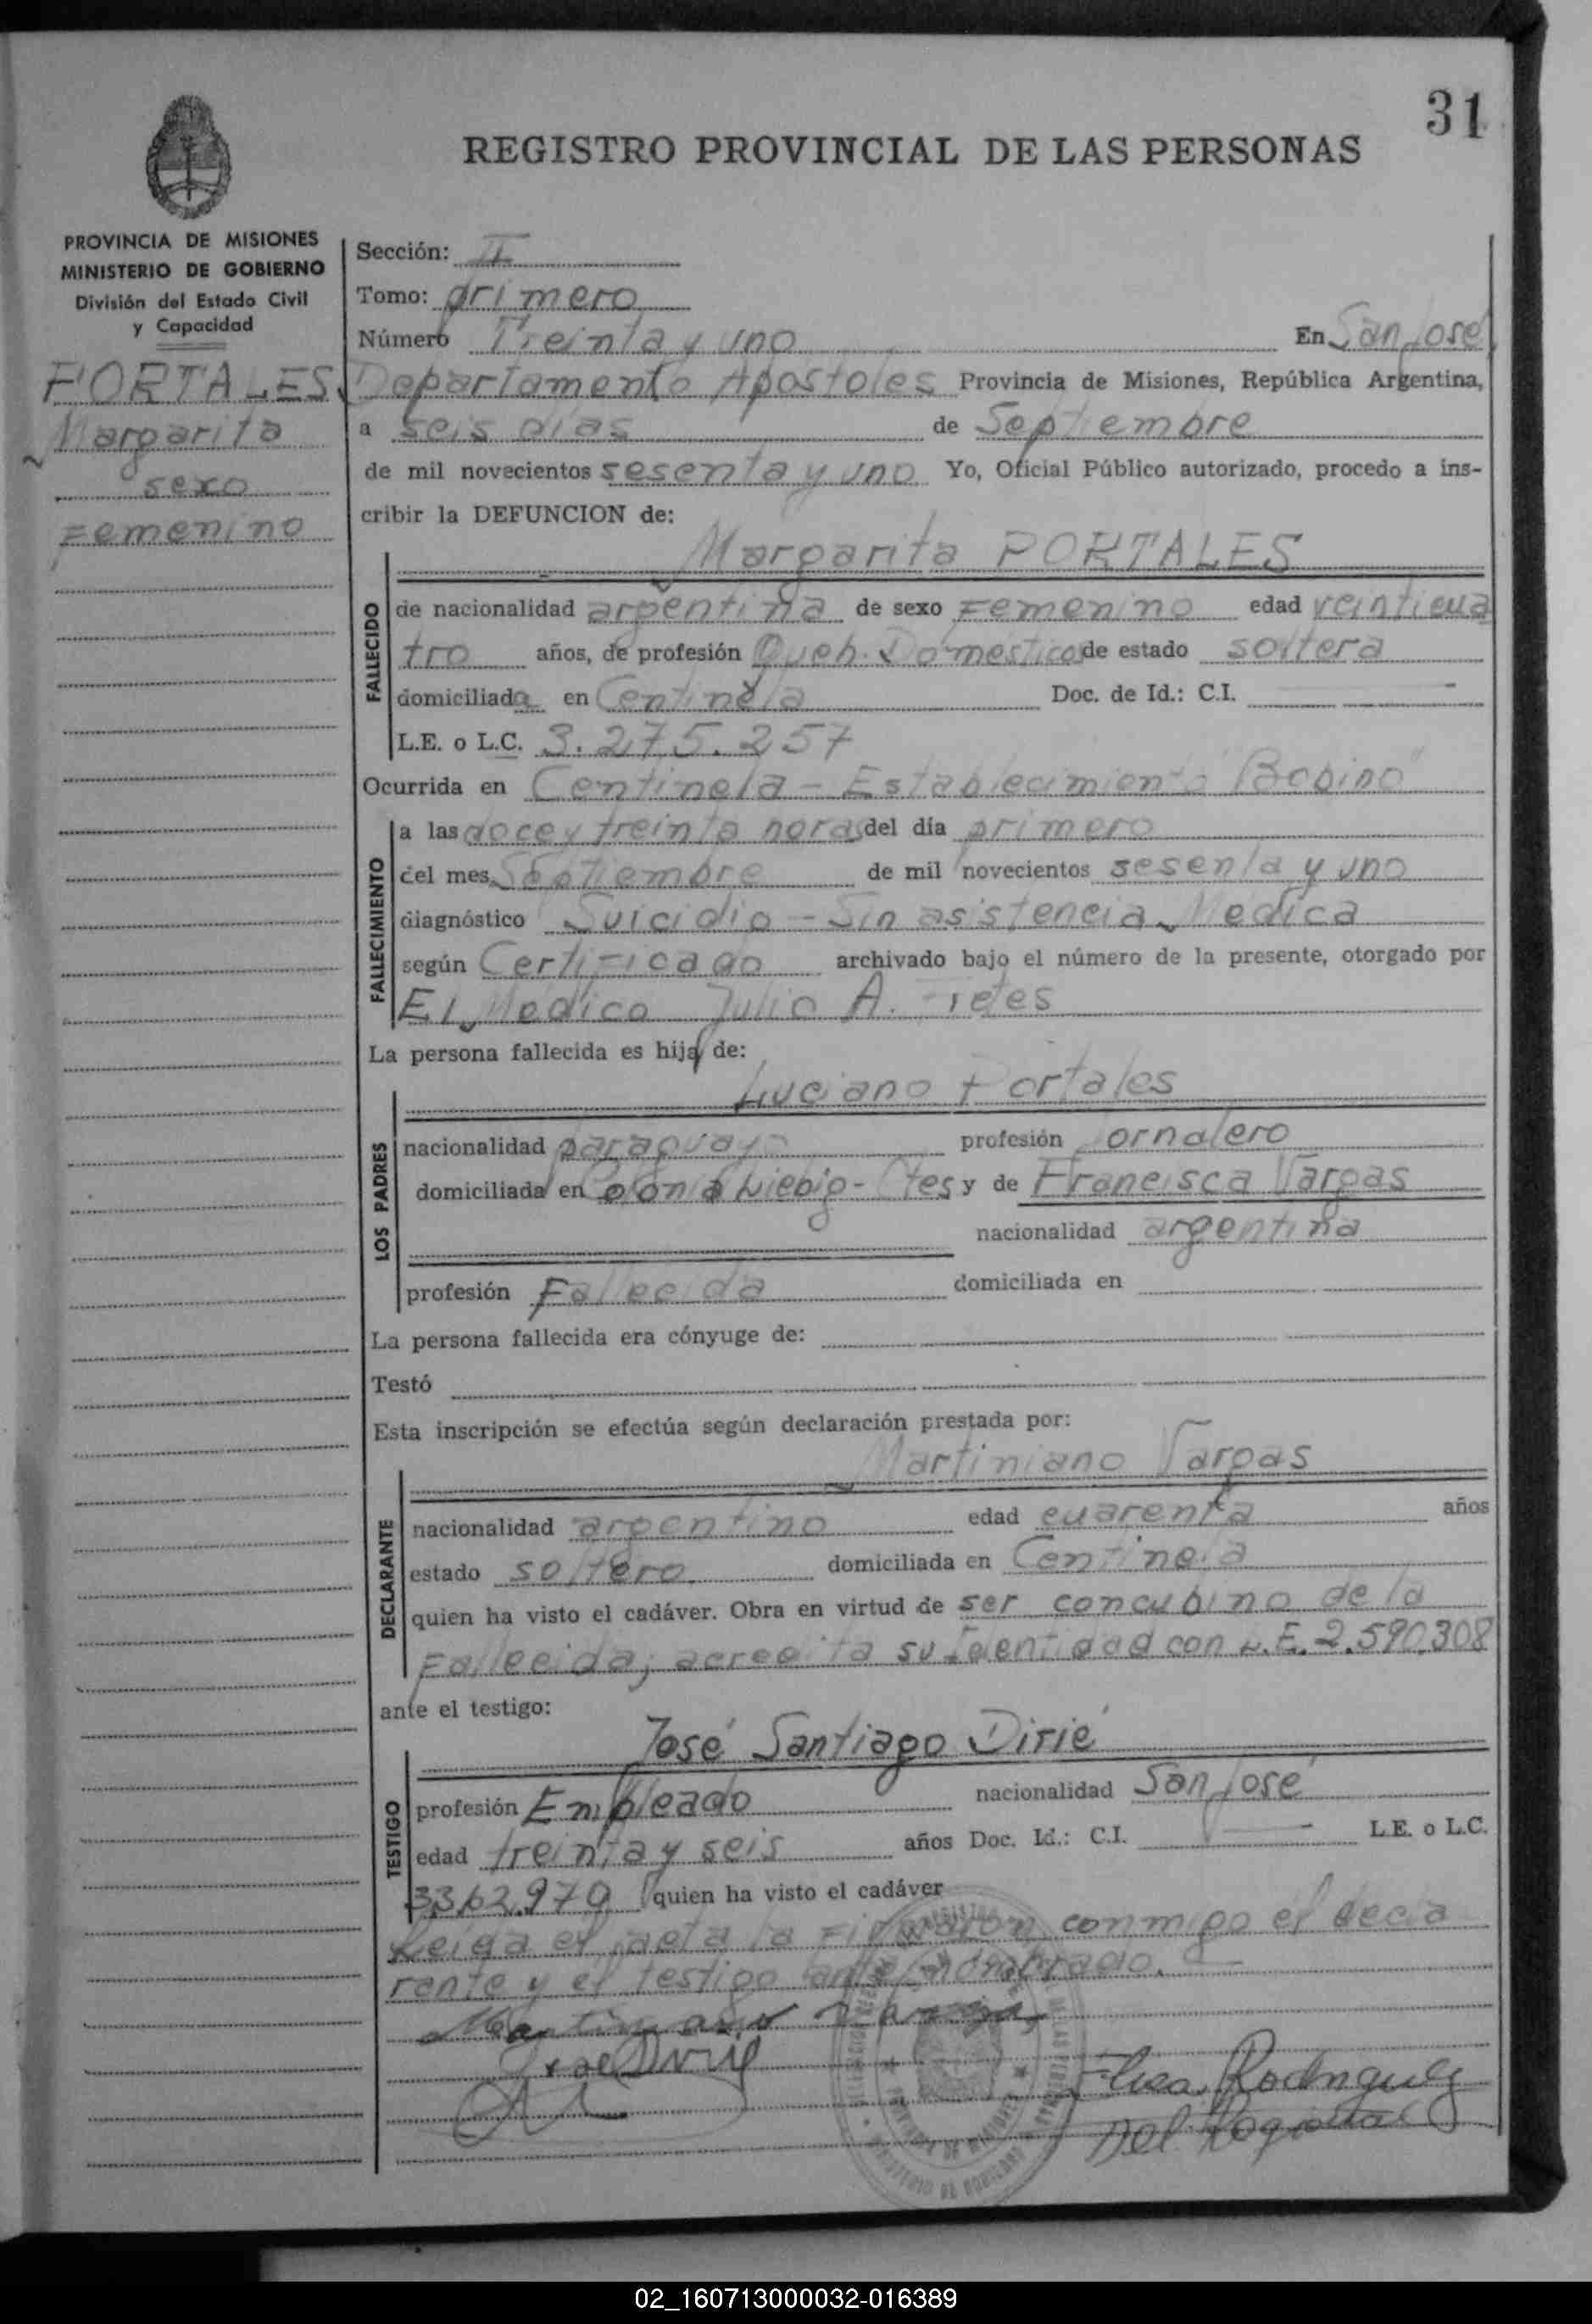 31
REGISTRO PROVINCIAL DE LAS PERSONAS
PROVINCIA DE MISIONES
MINISTERIO DE GOBIERNO
División del Estado Civil
y Capacidad
PORTALES
Margarita
sexo
Femenino
Sección: II
Tomo: primero
Número Treinta y uno En San José
Departamento Apostoles Provincia de Misiones, República Argentina,
a seis dias de Septiembre
de mil novecientos sesenta y uno Yo, Oficial Público autorizado, procedo a ins-
cribir la DEFUNCION de:
Margarita PORTALES
FALLECIDO
de nacionalidad argentina de sexo Femenino edad veinticua
tro años, de profesión Queh. Domesticos de estado soltera
domiciliada en Centinela Doc. de Id.: C.I.
L.E. o L.C. 3.275.257
Ocurrida en Centinela - Establecimiento
FALLECIMIENTO
a las doce y treinta horas del día primero
del mes Septiembre de mil novecientos sesenta y uno
diagnóstico Suicidio - Sin asistencia Medica
según Certificado archivado bajo el número de la presente, otorgado por
El Medico Julio A.
La persona fallecida es hija de:
Luciano Portales
LOS PADRES
nacionalidad paraguayo profesión Jornalero
domiciliada en Colonia Liebig - Ctes y de Francisca Vargas
nacionalidad argentina
profesión Fallecida domiciliada en
La persona fallecida era cónyuge de:
Testó
Esta inscripción se efectúa según declaración prestada por:
Martiniano Vargas
DECLARANTE
nacionalidad argentino edad cuarenta años
estado soltero domiciliada en Centinela
quien ha visto el cadáver. Obra en virtud de ser concubino de la
Fallecida, acredita su Identidad con L.E. 2.590.308
ante el testigo:
José Santiago Dirié
TESTIGO
profesión Empleado nacionalidad San José
edad treinta y seis años Doc. Id.: C.I. L.E. o L.C.
3362.970 quien ha visto el cadáver
Leida el acta la Firmaron conmigo el decla
rente y el testigo antes nombrado.
Martiniano Vargas
Elsa Rodriguez
02_160713000032-016389